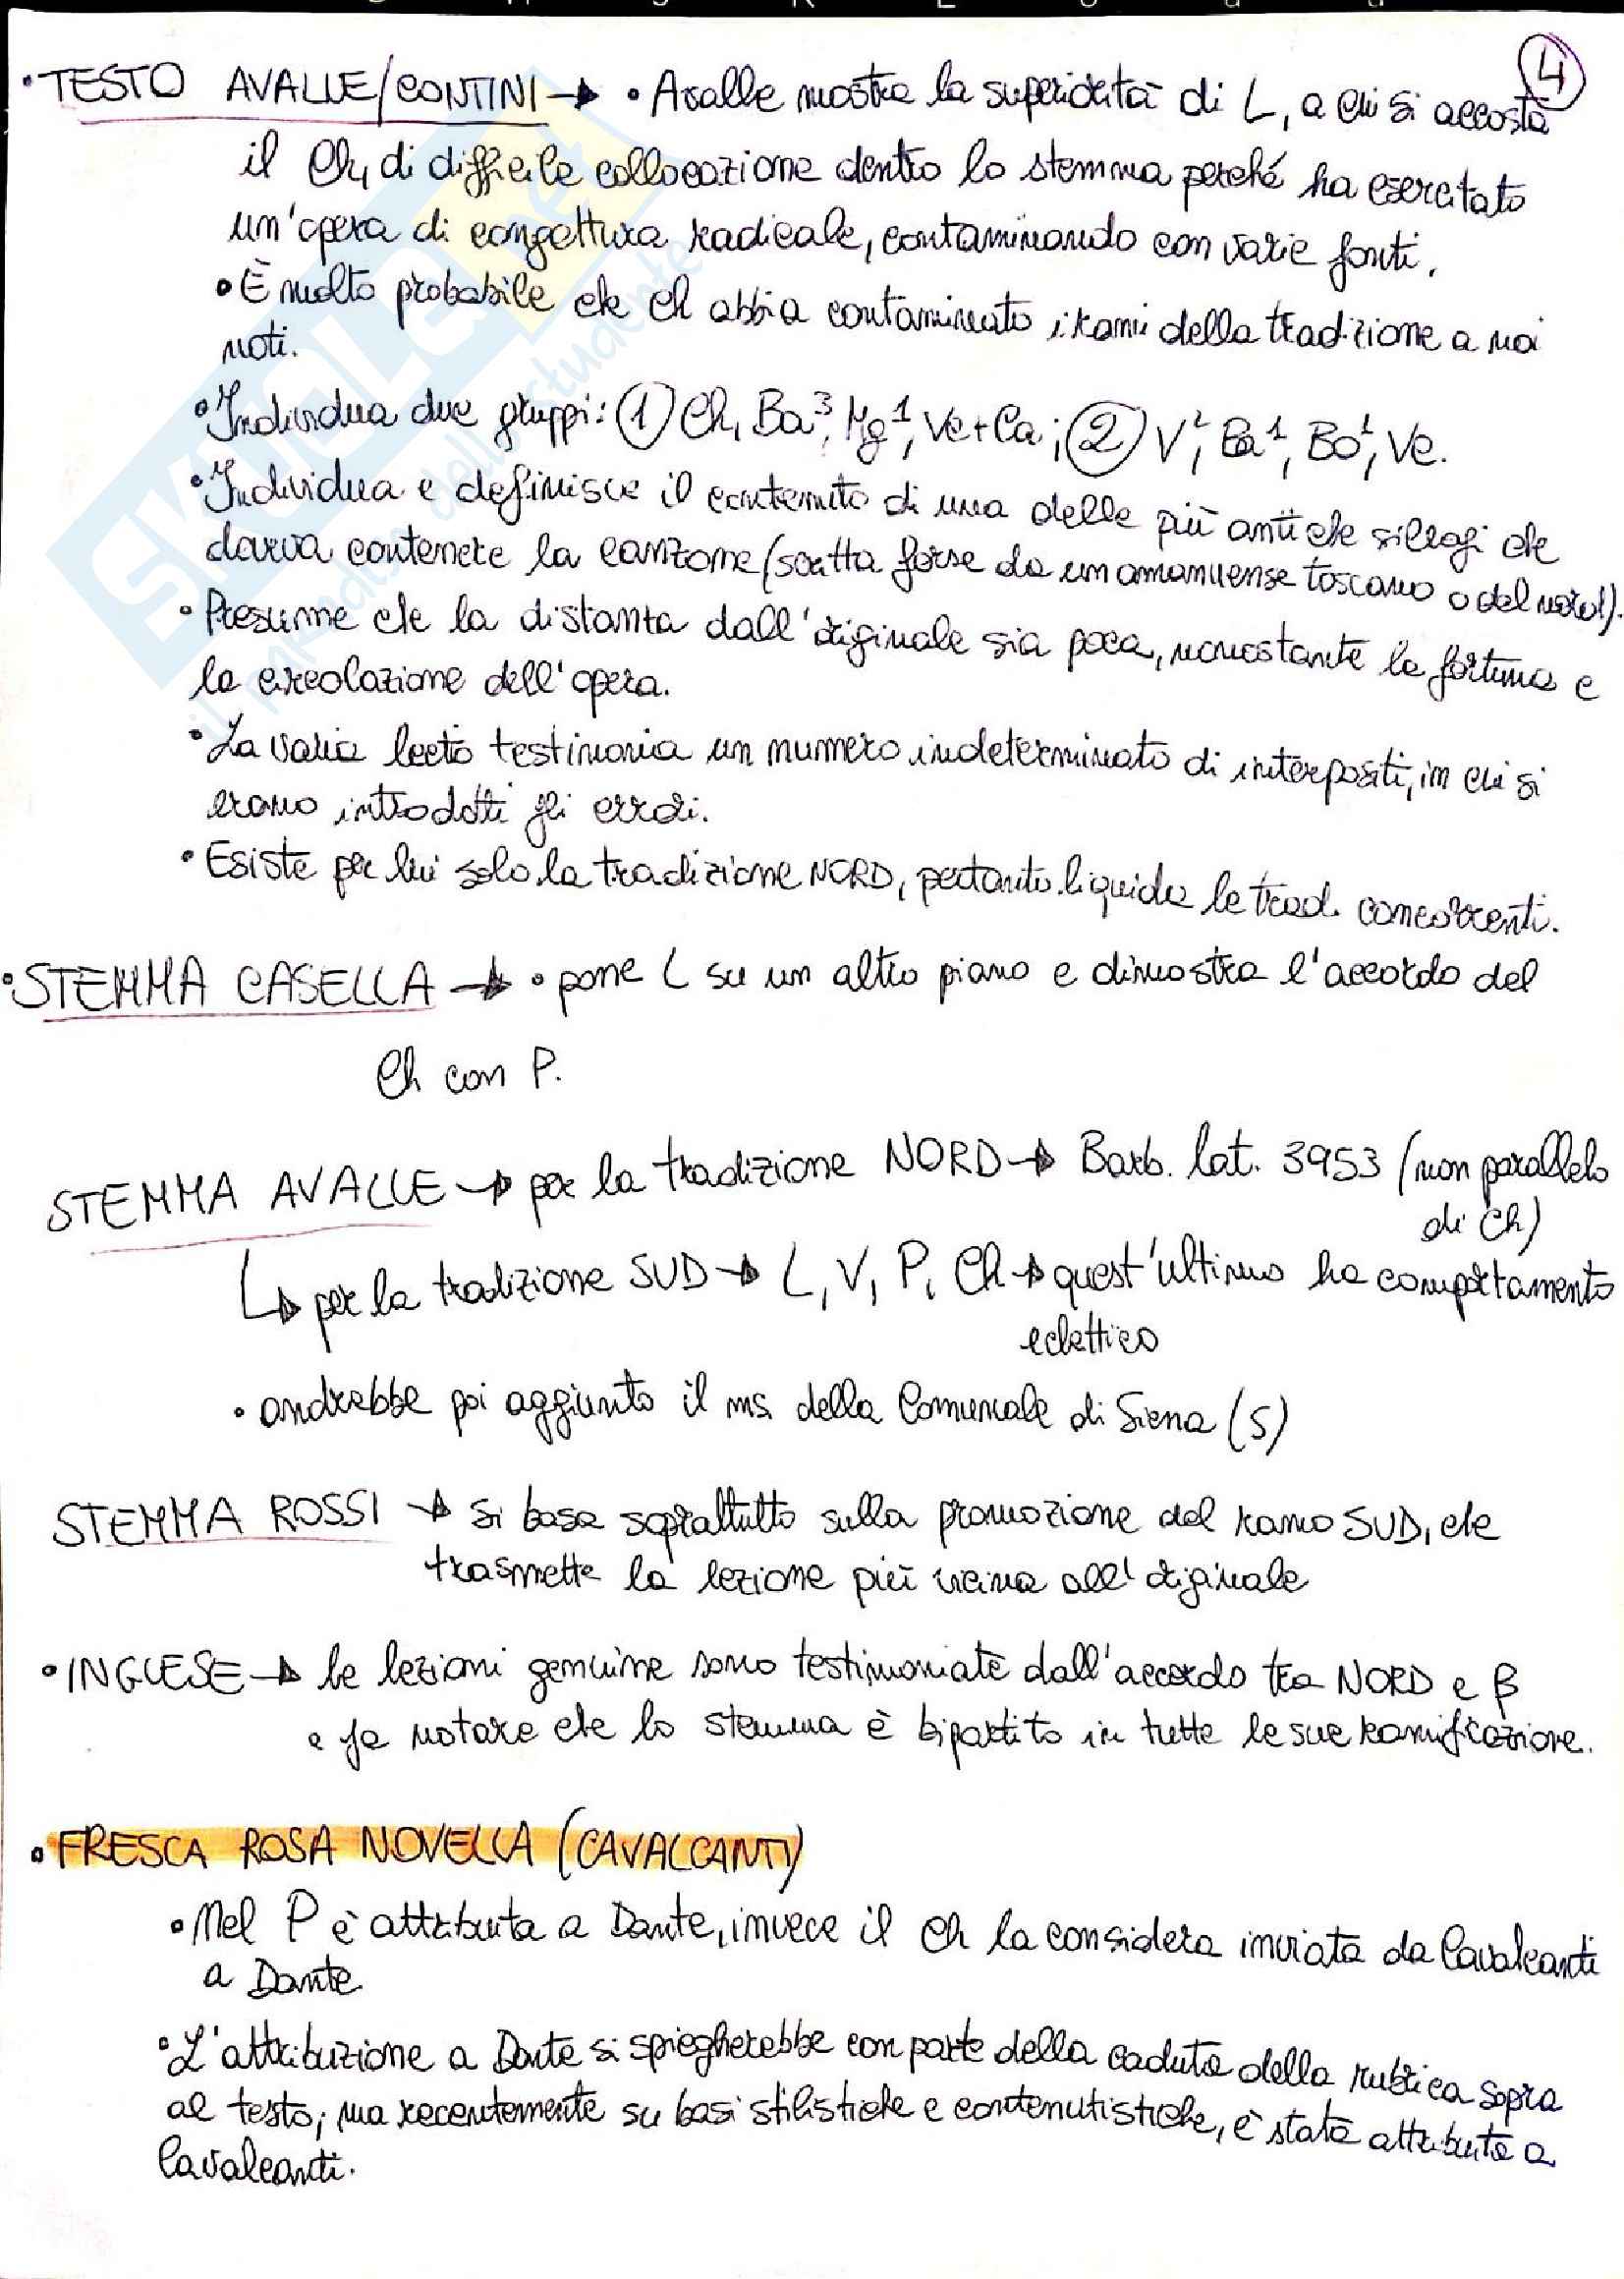 ④
• TESTO AVALLE/CONTINI → • Avalle mostra la superiorità di L, a cui si accosta
il Ch, di difficile collocazione dentro lo stemma perché ha esercitato
un'opera di congettura radicale, contaminando con varie fonti.
• È molto probabile che Ch abbia contaminato i rami della tradizione a noi
noti.
• Individua due gruppi: ① Ch, Ba³, Mg¹, Ve+Ca; ② V², Ba¹, Bo¹, Ve.
• Individua e definisce il contenuto di una delle più antiche sillogi che
doveva contenere la canzone (scritta forse da un amanuense toscano o del nord!).
• Presume che la distanza dall'originale sia poca, nonostante la fortuna e
la circolazione dell'opera.
• La varia lectio testimonia un numero indeterminato di interpositi, in cui si
erano introdotti gli errori.
• Esiste per lui solo la tradizione NORD, pertanto liquida le trad. concorrenti.
• STEMMA CASELLA → • pone L su un altro piano e dimostra l'accordo del
Ch con P.
STEMMA AVALLE → per la tradizione NORD → Barb. lat. 3953 (non parallelo
di Ch)
↳ per la tradizione SUD → L, V, P, Ch → quest'ultimo ha comportamento
eclettico
• andrebbe poi aggiunto il ms. della Comunale di Siena (S)
STEMMA ROSSI → si basa soprattutto sulla promozione del ramo SUD, che
trasmette la lezione più vicina all'originale
• INGLESE → le lezioni genuine sono testimoniate dall'accordo tra NORD e β
e fa notare che lo stemma è bipartito in tutte le sue ramificazione.
• FRESCA ROSA NOVELLA (CAVALCANTI)
• Nel P è attribuita a Dante, invece il Ch la considera inviata da Cavalcanti
a Dante
• L'attribuzione a Dante si spiegherebbe con parte della caduta della rubrica sopra
al testo; ma recentemente su basi stilistiche e contenutistiche, è stata attribuita a
Cavalcanti.
SKUOLA.net
il paradiso dello studente